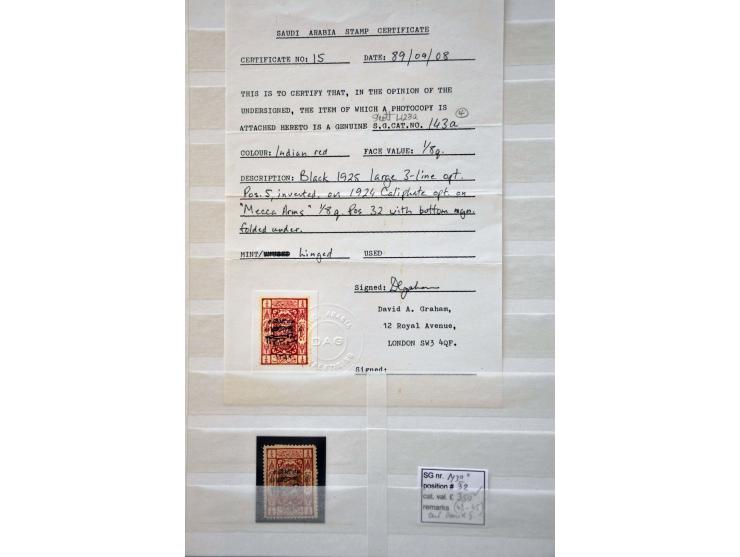 SAUDI ARABIA STAMP CERTIFICATE
CERTIFICATE NO: 15 DATE: 89/09/08
THIS IS TO CERTIFY THAT, IN THE OPINION OF THE
UNDERSIGNED, THE ITEM OF WHICH A PHOTOCOPY IS
Scott L123a
ATTACHED HERETO IS A GENUINE S.G.CAT.NO. 143a
COLOUR: Indian red FACE VALUE: 1/8q.
DESCRIPTION: Black 1925 large 3-line opt.
Pos. 5, inverted, on 1924 Caliphate opt. on
"Mecca Arms" 1/8q. Pos 32 with bottom mgn.
folded under.
MINT/UNUSED hinged USED
Signed: DAGraham
David A. Graham,
12 Royal Avenue,
LONDON SW3 4QF.
DAG
Signed:
SG nr.
position # 32
cat. val. £ 350
remarks